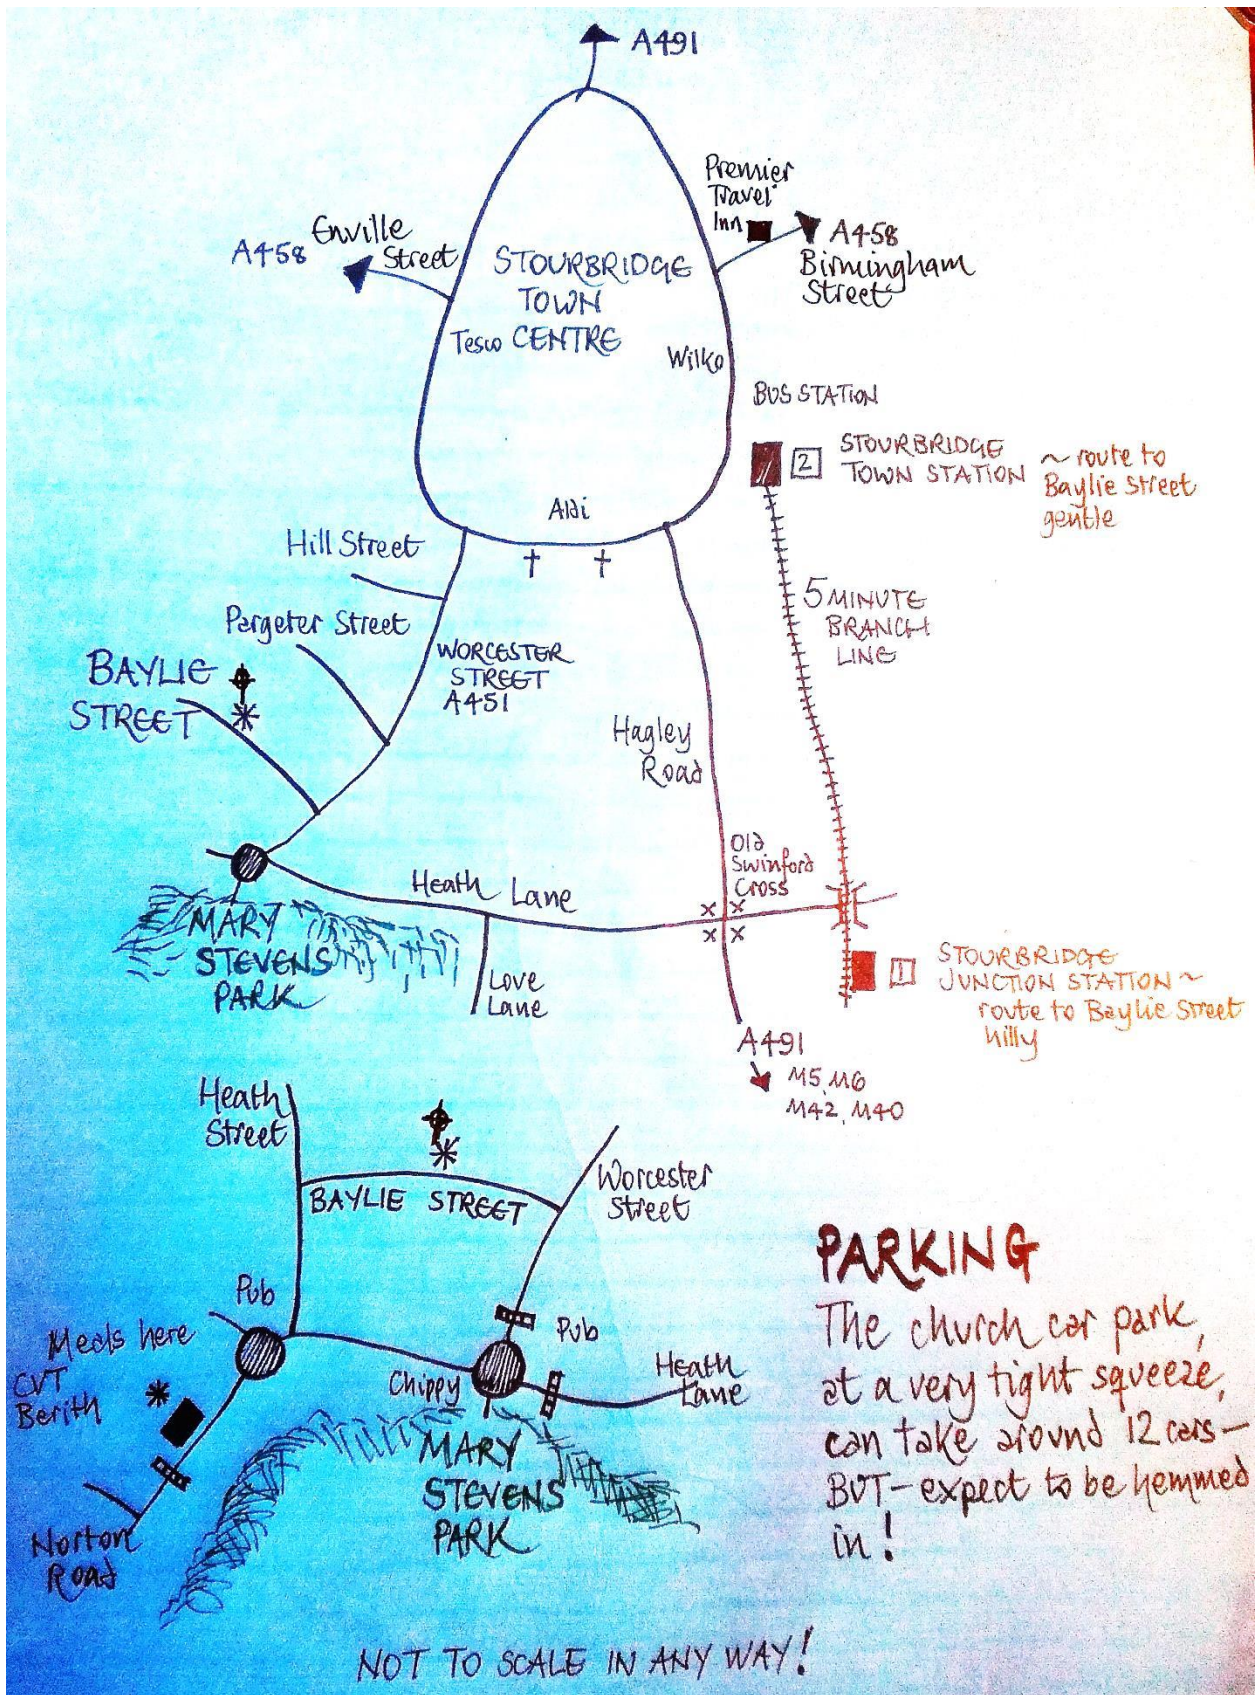 A491
Premier
Travel
Inn
A458
Birmingham
Street
A458
Enville
Street
STOURBRIDGE
TOWN
CENTRE
Tesco
Wilko
BUS STATION
2
STOURBRIDGE
TOWN STATION
~ route to
Baylie Street
gentle
Aldi
Hill Street
Pargeter Street
5 MINUTE
BRANCH
LINE
WORCESTER
STREET
A451
BAYLIE
STREET
Hagley
Road
Old
Swinford
Cross
Heath Lane
MARY
STEVENS
PARK
Love
Lane
1
STOURBRIDGE
JUNCTION STATION ~
route to Baylie Street
hilly
A491
M5, M6
M42, M40
Heath
Street
BAYLIE STREET
Worcester
Street
Pub
Meals here
CVT
Berith
Pub
Chippy
Heath
Lane
MARY
STEVENS
PARK
Norton
Road
PARKING
The church car park,
at a very tight squeeze,
can take around 12 cars –
BUT – expect to be hemmed
in!
NOT TO SCALE IN ANY WAY!